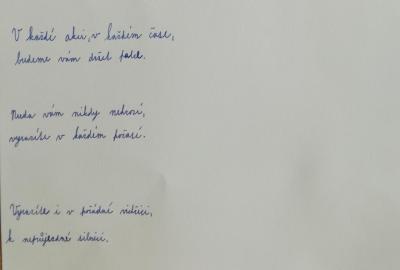 V každé akci, v každém čase,
budeme vám držet palce.
Nuda vám nikdy nehrozí,
vyrazíte v každém počasí.
Vyrazíte i v pořádné vichřici,
k neprůjezdné silnici.